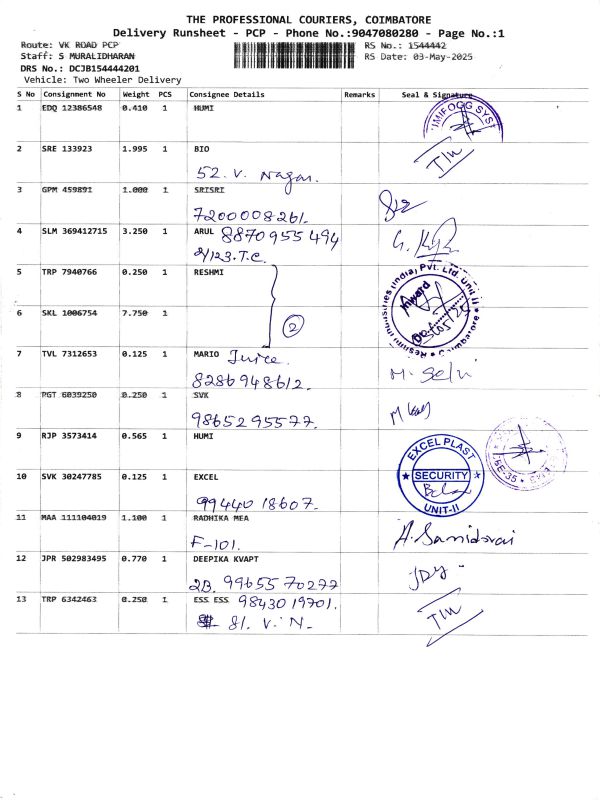 THE PROFESSIONAL COURIERS, COIMBATORE
Delivery Runsheet - PCP - Phone No.:9047080280 - Page No.:1
Route: VK ROAD PCP
RS No.: 1544442
Staff: S MURALIDHARAN
RS Date: 03-May-2025
DRS No.: DCJB154444201
Vehicle: Two Wheeler Delivery
S No Consignment No Weight PCS Consignee Details Remarks Seal & Signature
1 EDQ 12386548 0.410 1 HUMI
2 SRE 133923 1.995 1 BIO
52. V. Nagar.
3 GPM 459891 1.000 1 SRISRI
7200008261.
4 SLM 369412715 3.250 1 ARUL 8870955494
2/123.T.C.
5 TRP 7940766 0.250 1 RESHMI
6 SKL 1006754 7.750 1
2
7 TVL 7312653 0.125 1 MARIO Juice.
8286948612.
M. Selvi
8 PGT 6039250 0.250 1 SVK
9865295577.
9 RJP 3573414 0.565 1 HUMI
10 SVK 30247785 0.125 1 EXCEL
9944018607.
EXCEL PLAST
SECURITY
UNIT-II
11 MAA 111104019 1.100 1 RADHIKA MEA
F-101.
12 JPR 502983495 0.770 1 DEEPIKA KVAPT
2B. 9965570277
13 TRP 6342463 0.250 1 ESS ESS 9843019701.
81. V. N.